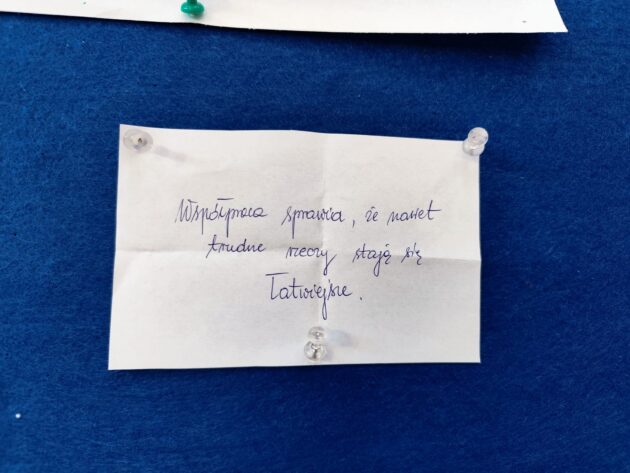 Współpraca sprawia, że nawet
trudne rzeczy stają się
łatwiejsze.